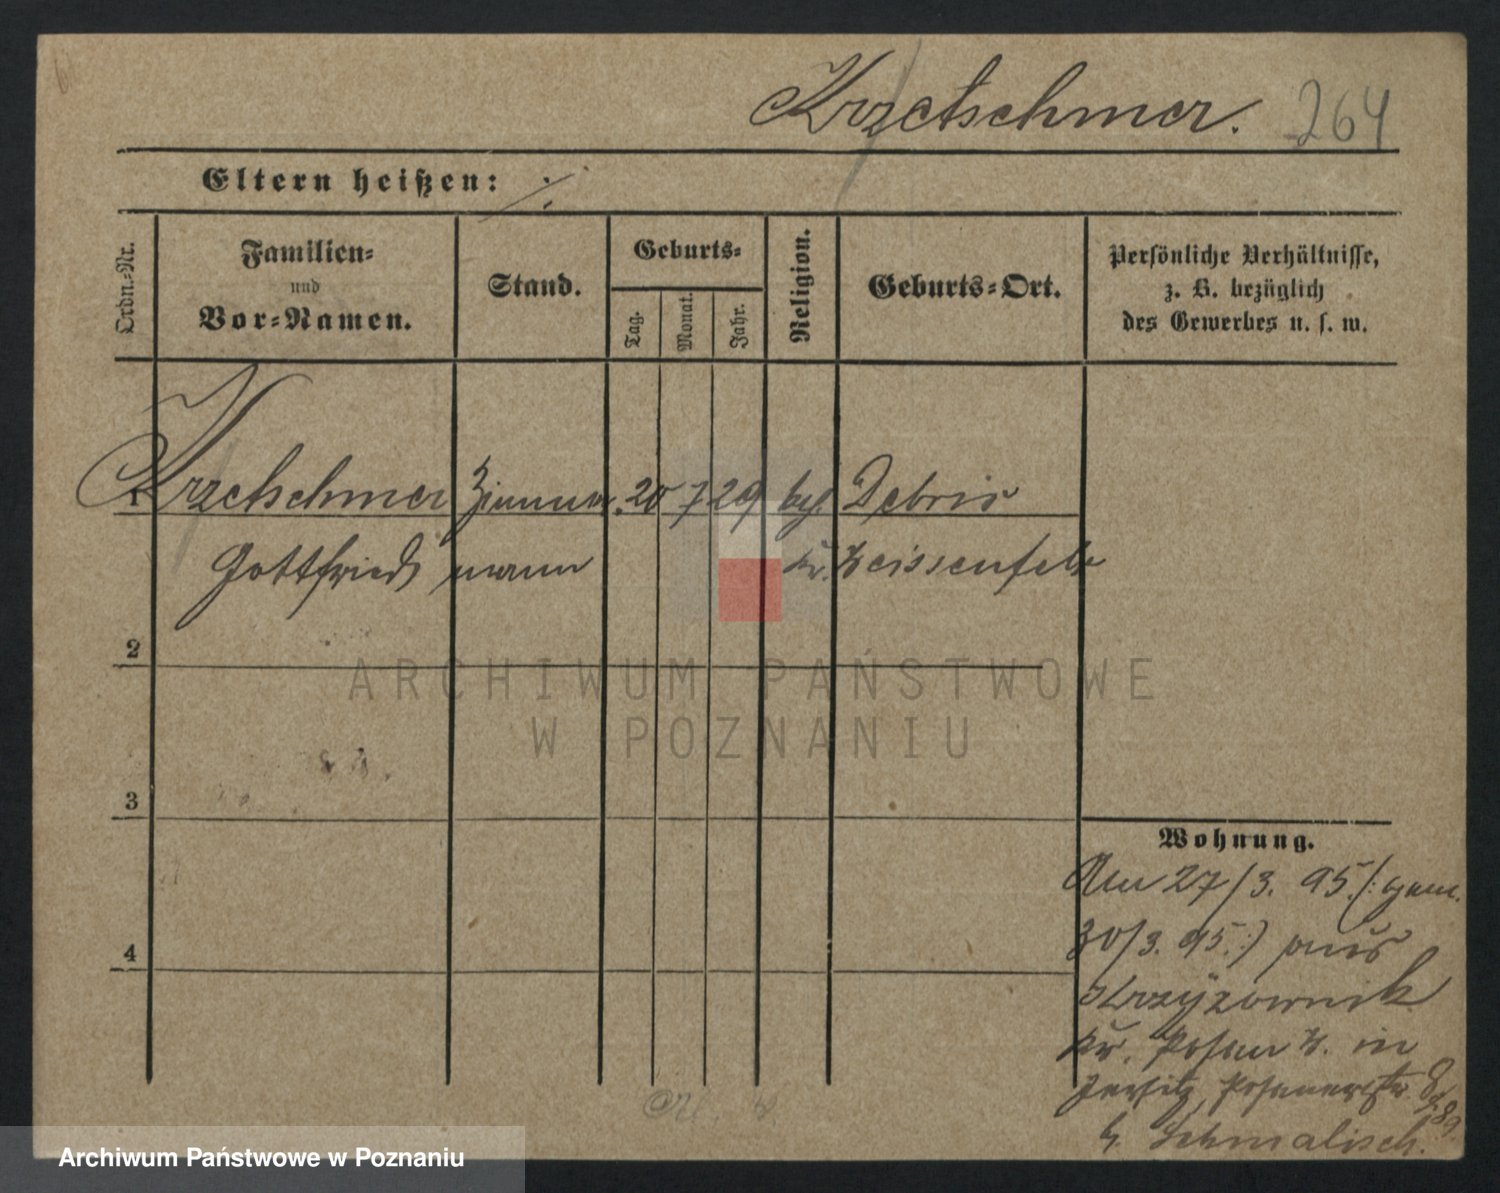 Krzetschmer. 264
Eltern heißen: ./.
Ordn.=Nr.
Familien=
und
Vor=Namen.
Stand.
Geburts=
Tag.
Monat.
Jahr.
Religion.
Geburts=Ort.
Persönliche Verhältnisse,
z. B. bezüglich
des Gewerbes u. s. w.
1 Krzetschmer Zimmer 20 7 29 Debris
Gottfried mann Kr. Weissenfels
2
ARCHIWUM PAŃSTWOWE
W POZNANIU
3
Wohnung.
Am 27/3. 95. (: gem.
30/3. 95. :) aus
Krzyżownik
Kr. Posen W. in
Jersitz, Posenerstr.
b. Schmalisch.
4
Archiwum Państwowe w Poznaniu